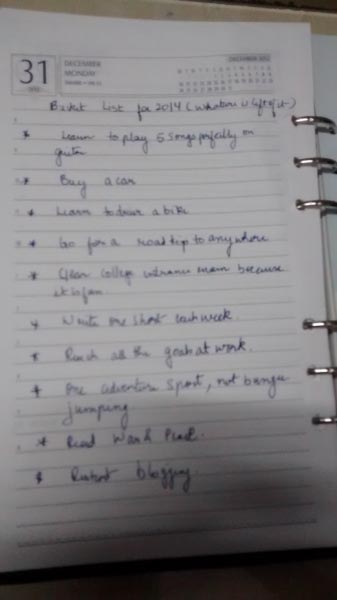 31
DECEMBER
MONDAY
DECEMBER 2012
Bucket List for 2014 (whatever is left of it)
* Learn to play 5 songs perfectly on
guitar
* Buy a car
* Learn to drive a bike
* Go for a road trip to anywhere
* Clear college entrance exam because
it is fun
* Write one short each week.
* Reach all the goals at work.
* One adventure sport, not bungee
jumping
* Read War & Peace.
* Restart blogging.